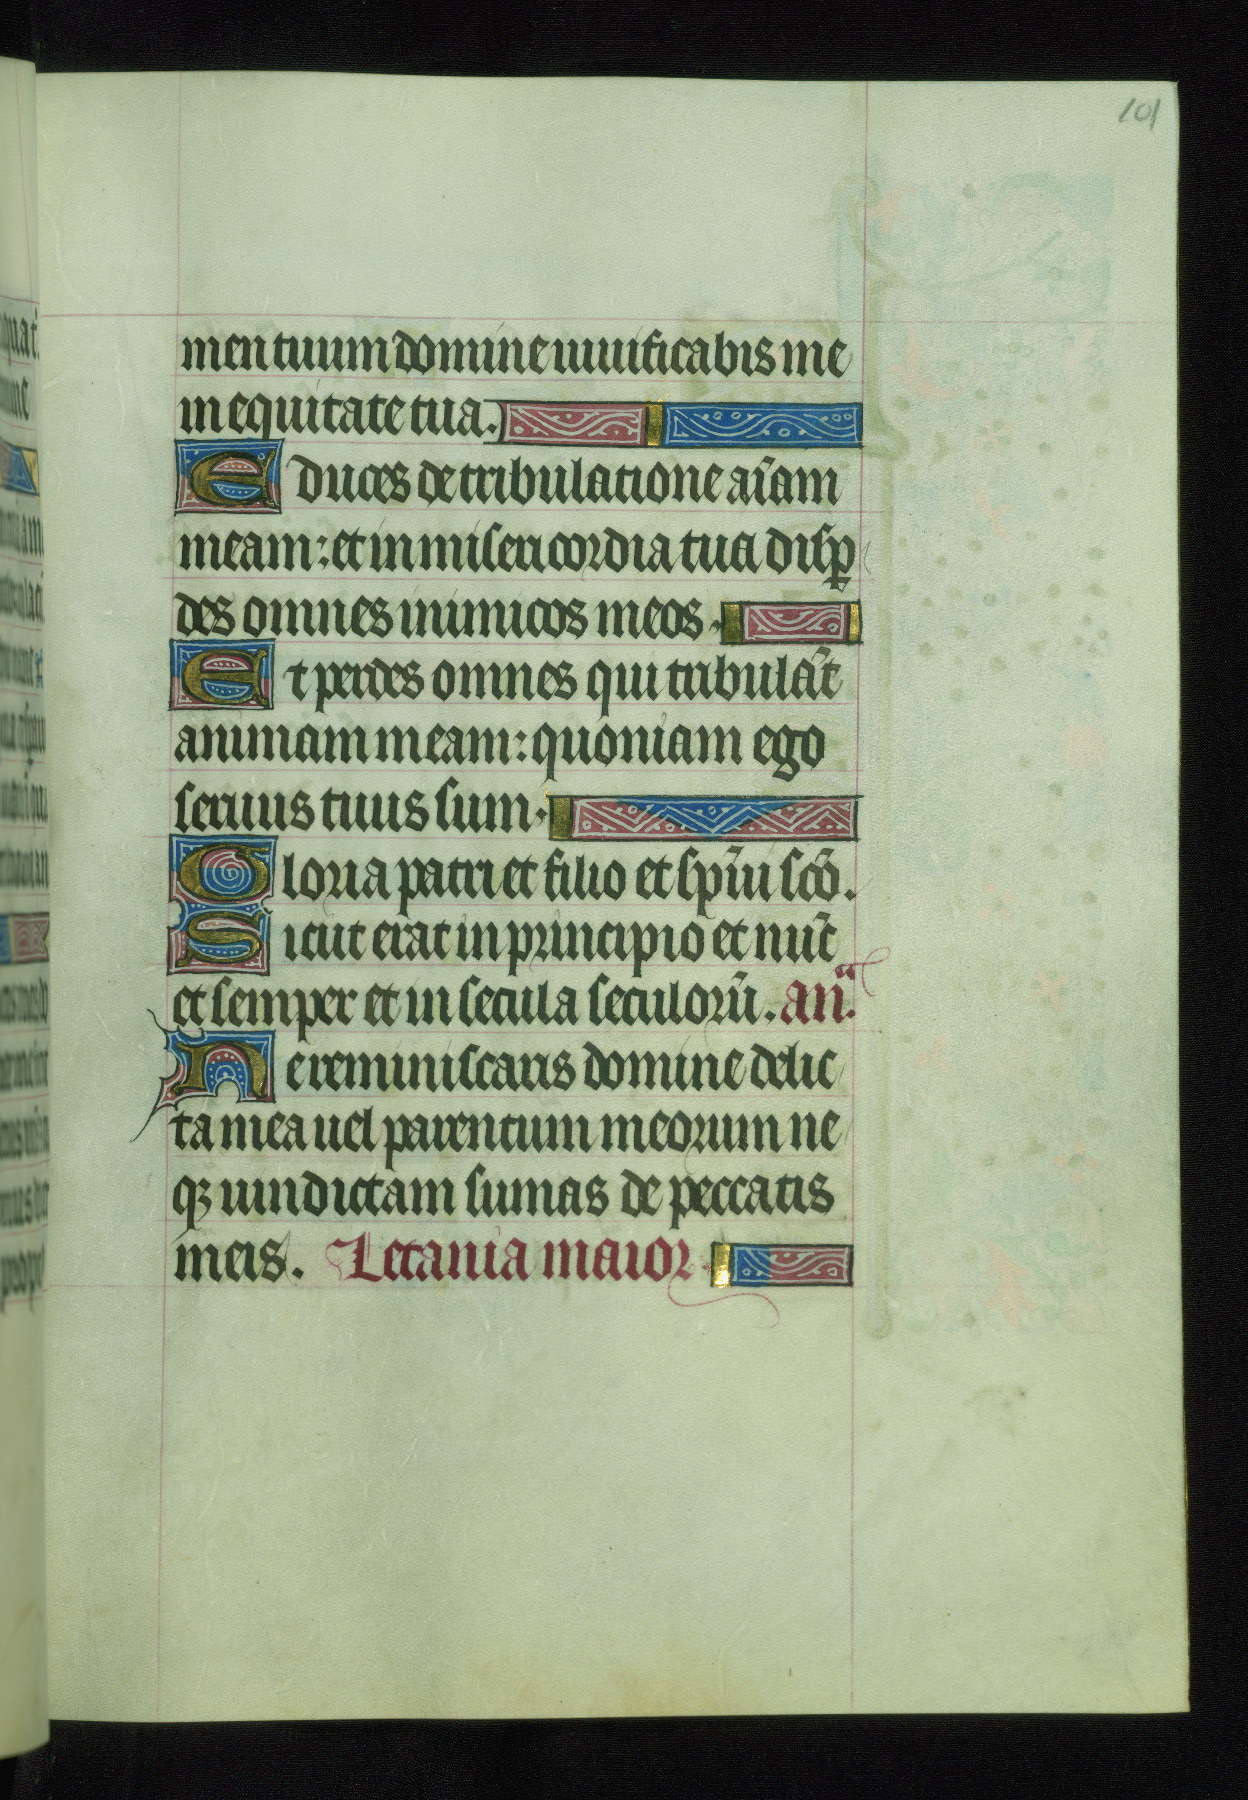 101
men tuum domine uiuificabis me
in equitate tua.
Educes de tribulatione aīam
meam: et in misericordia tua disꝑ
des omnes inimicos meos.
Et perdes omnes qui tribulāt
animam meam: quoniam ego
seruus tuus sum.
Gloria patri et filio et spūi scō.
Sicut erat in principio et nūc
et semper et in secula seculorū. añ.
Ne reminiscaris domine delic
ta mea uel parentum meorum ne
qꝫ uindictam sumas de peccatis
meis. Letania maior.